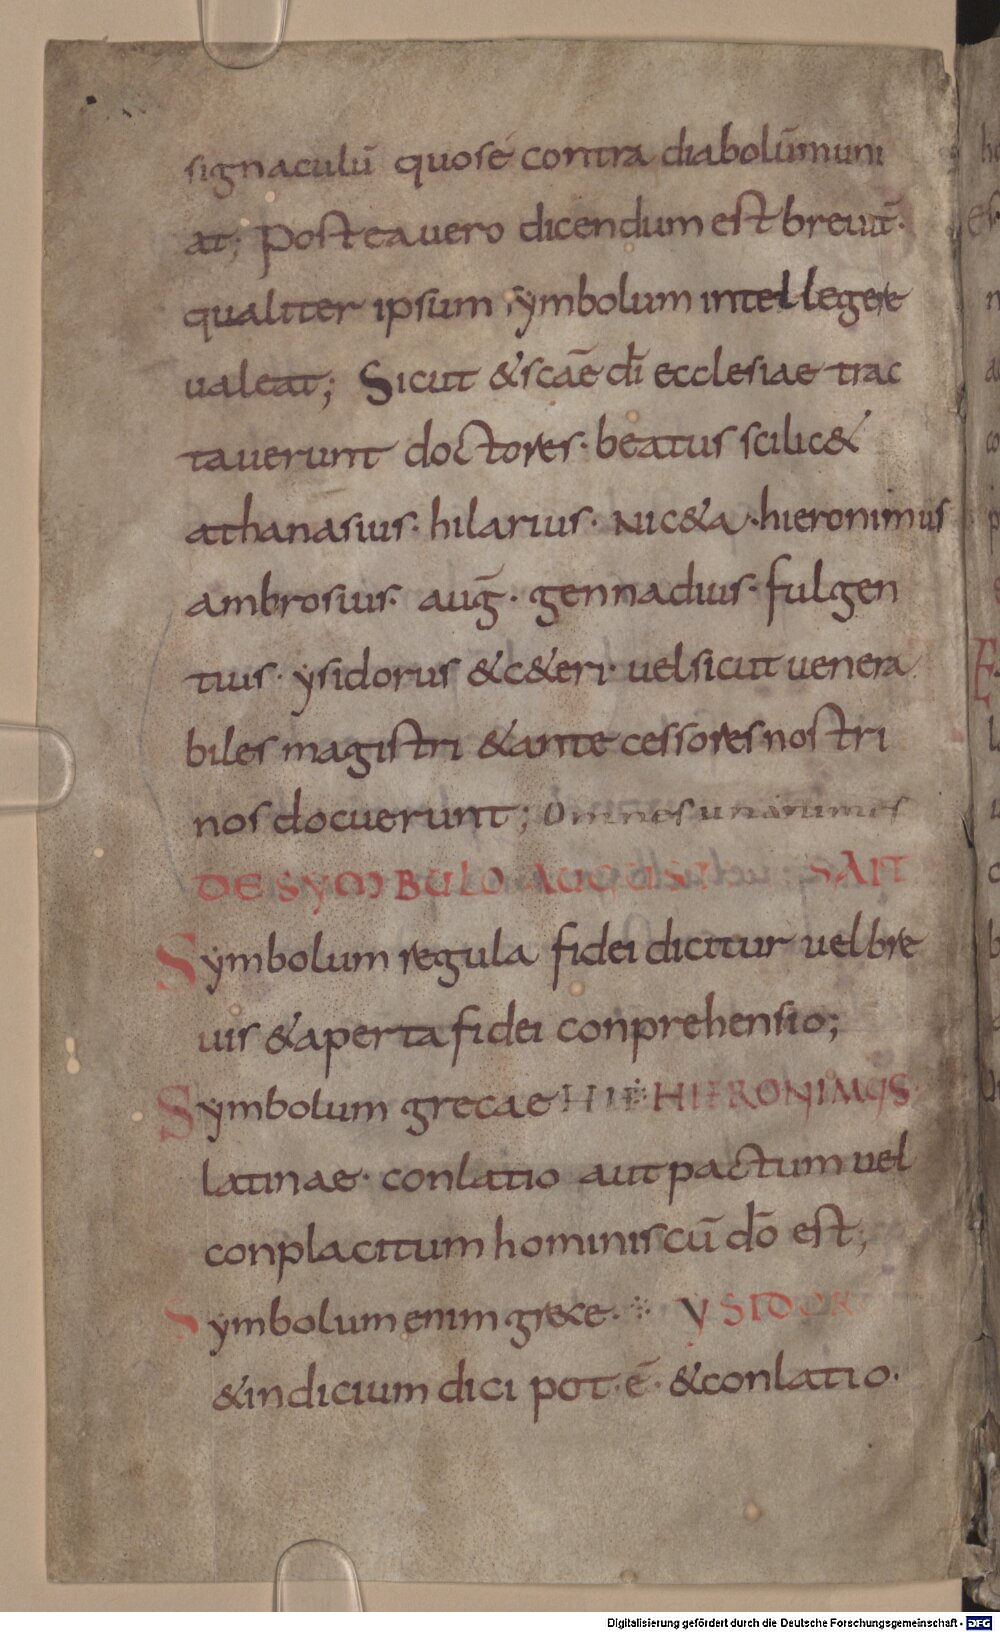 signaculū quo se contra diabolūmuni
at; Postea uero dicendum est breuit̄·
qualiter ipsum symbolum intellegere
ualeat; Sicut & scāe dī ecclesiae trac
tauerunt doctores· beatus scilic&
athanasius· hilarius· Nic&a· hieronimus
ambrosius· auḡ· gennadius· fulgen
tius· ysidorus & c&eri· uel sicut uenera
biles magistri & ante cessores nostri
nos docuerunt; Omnes unanimes
DE SYMBULO
Symbolum regula fidei dicitur uel bre
uis & aperta fidei conprehensio;
Symbolum grecae HIE HIERONIMUS·
latinae· conlatio aut pactum uel
conplacitum hominis cū dō est;
Symbolum enim grece· YSIDOR
& indicium dici pot·ē· & conlatio·
Digitalisierung gefördert durch die Deutsche Forschungsgemeinschaft - DFG